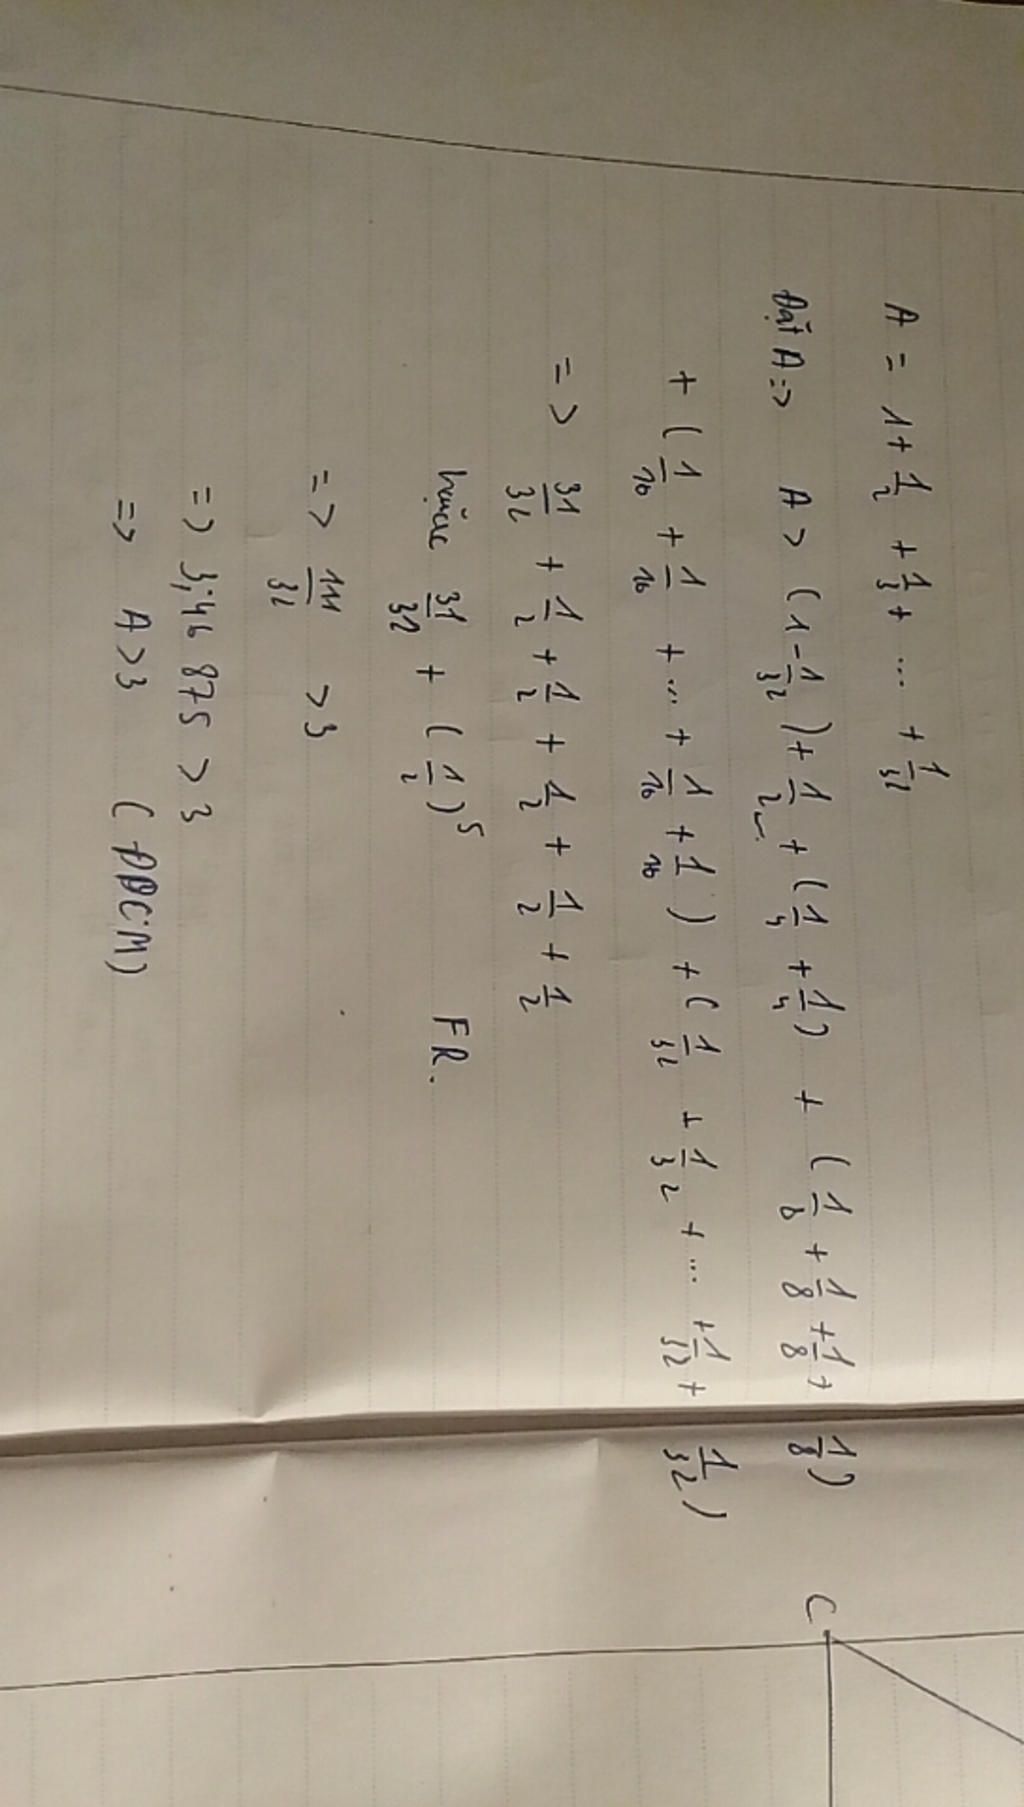 A = 1 + 1/2 + 1/3 + ... + 1/32
Đặt A => A > (1 - 1/32) + 1/2 + (1/4 + 1/4) + (1/8 + 1/8 + 1/8 + 1/8)
+ (1/16 + 1/16 + ... + 1/16 + 1/16) + (1/32 + 1/32 + ... + 1/32 + 1/32)
=> 31/32 + 1/2 + 1/2 + 1/2 + 1/2 + 1/2
hoặc 31/32 + (1/2)^5 FR.
=> 111/32 > 3
=> 3,46 875 > 3
=> A > 3 (ĐPCM)
C